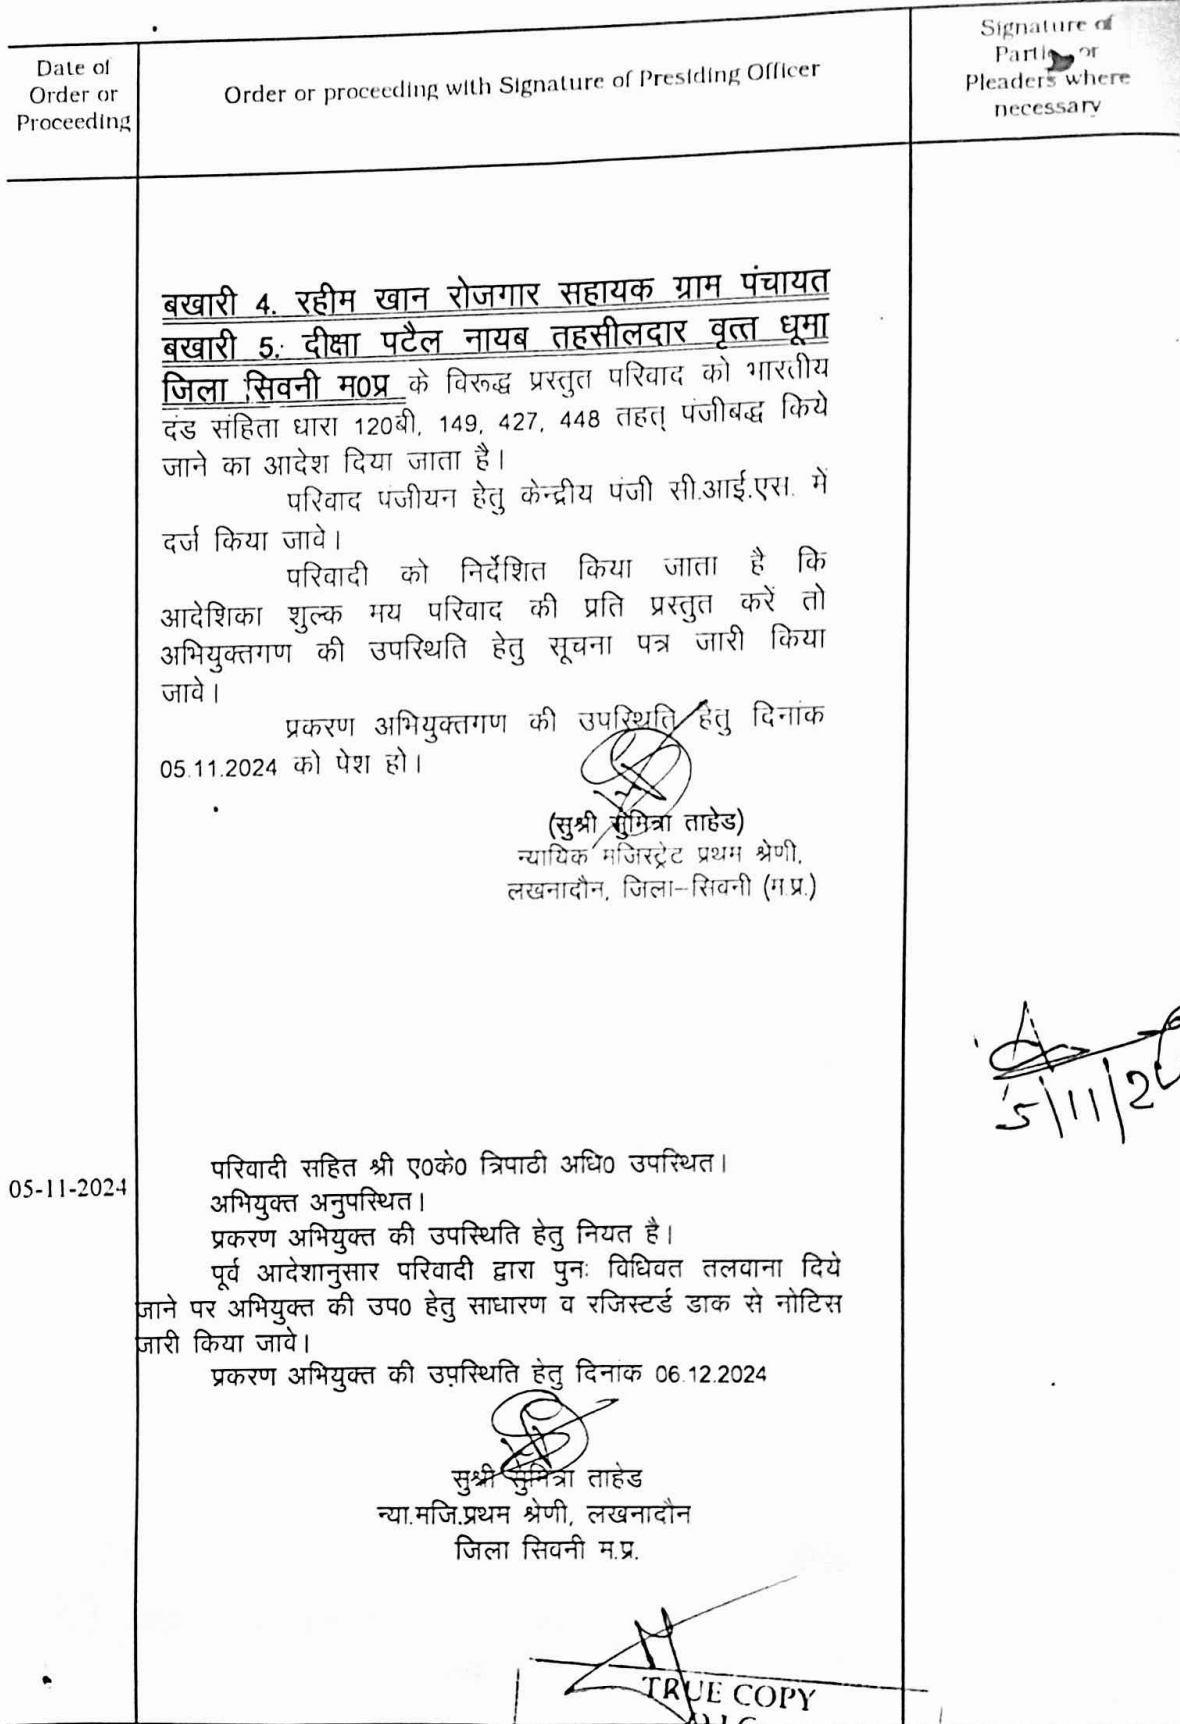 Date of
Order or
Proceeding
Order or proceeding with Signature of Presiding Officer
Signature of
Parties or
Pleaders where
necessary
बखारी 4. रहीम खान रोजगार सहायक ग्राम पंचायत
बखारी 5. दीक्षा पटैल नायब तहसीलदार वृत्त धूमा
जिला सिवनी म0प्र के विरूद्ध प्रस्तुत परिवाद को भारतीय
दंड संहिता धारा 120बी, 149, 427, 448 तहत् पंजीबद्ध किये
जाने का आदेश दिया जाता है।
परिवाद पंजीयन हेतु केन्द्रीय पंजी सी.आई.एस. में
दर्ज किया जावे।
परिवादी को निर्देशित किया जाता है कि
आदेशिका शुल्क मय परिवाद की प्रति प्रस्तुत करें तो
अभियुक्तगण की उपस्थिति हेतु सूचना पत्र जारी किया
जावे।
प्रकरण अभियुक्तगण की उपस्थिति हेतु दिनांक
05.11.2024 को पेश हो।
(सुश्री सुमित्रा ताहेड)
न्यायिक मजिस्ट्रेट प्रथम श्रेणी,
लखनादौन, जिला–सिवनी (म.प्र.)
5/11/2
05-11-2024
परिवादी सहित श्री ए0के0 त्रिपाठी अधि0 उपस्थित।
अभियुक्त अनुपस्थित।
प्रकरण अभियुक्त की उपस्थिति हेतु नियत है।
पूर्व आदेशानुसार परिवादी द्वारा पुनः विधिवत तलवाना दिये
जाने पर अभियुक्त की उप0 हेतु साधारण व रजिस्टर्ड डाक से नोटिस
जारी किया जावे।
प्रकरण अभियुक्त की उपस्थिति हेतु दिनांक 06.12.2024
सुश्री सुमित्रा ताहेड
न्या.मजि.प्रथम श्रेणी, लखनादौन
जिला सिवनी म.प्र.
TRUE COPY